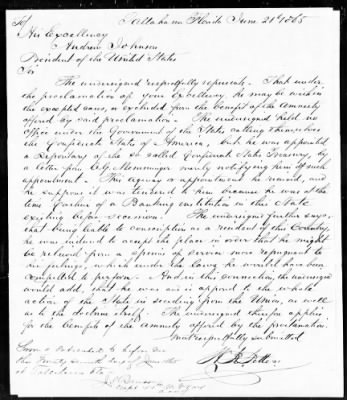 Tallahassee Florida June 21st 1865
To
His Excellency
Andrew Johnson
President of the United States
Sir
The undersigned respectfully represents. That under
the proclamation of your Excellency, he may be within
the excepted cases, or excluded from the benefit of the amnesty
offered by said proclamation. The undersigned held no
Office under the Government of the States calling themselves
the Confederate States of America, but he was appointed
a Depositary of the so called Confederate States Treasury, by
a letter from C. G. Memminger merely notifying him of such
appointment. This was an appointment he
and
he supposes it was tendered to him because he was at the
time Cashier of a Banking institution in this State
existing before secession. The undersigned further says,
that being liable to conscription as a resident of the Country,
he was induced to accept the place in order that he might
be relieved from a species of service more repugnant to
his feelings, which under the laws he would have been
compelled to perform. And in this connection, the undersigned
would add, that he was opposed to the whole
action of the State in seceding from the Union, as well
as to the doctrine itself. The undersigned therefore applies
for the benefits of the amnesty offered by the proclamation.
most respectfully submitted
Sworn & Subscribed to before me
this Twenty
day of June 1865
at Tallahassee Fla
Capt